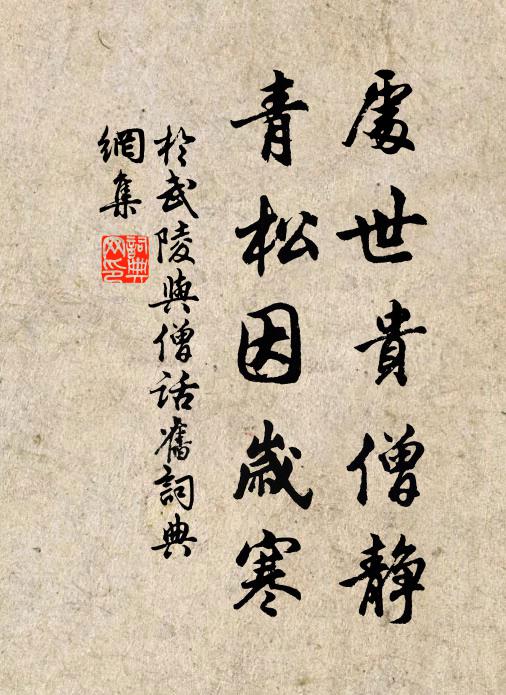 處世貴僧靜
青松因歲寒
於武陵與僧話舊詞典
網集
詞典
网印